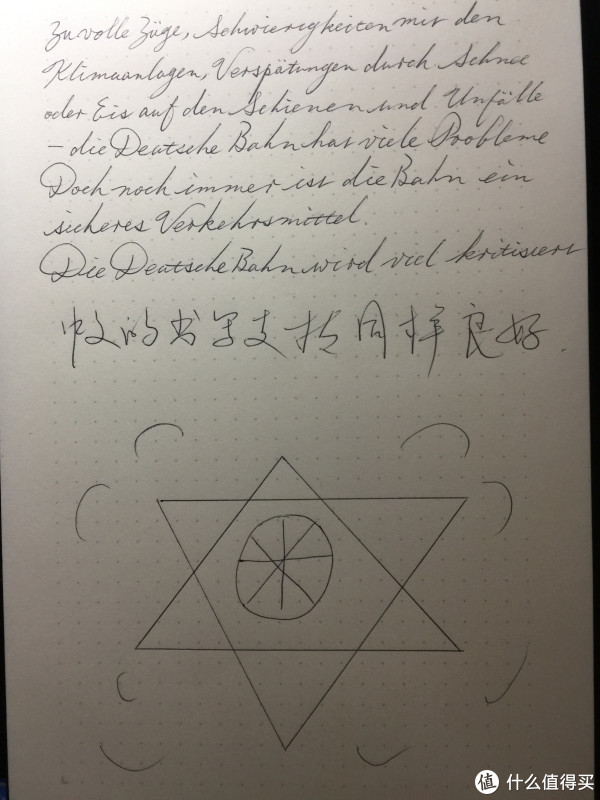 Zu volle Züge, Schwierigkeiten mit den
Klimaanlagen, Verspätungen durch Schnee
oder Eis auf den Schienen und Unfälle
– die Deutsche Bahn hat viele Probleme
Doch noch immer ist die Bahn ein
sicheres Verkehrsmittel.
Die Deutsche Bahn wird viel kritisiert
中文的书写支持同样良好.
值 什么值得买